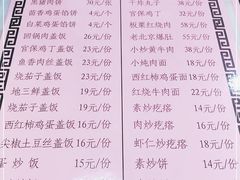 茴香鸡蛋馅饼 4元/个
白菜鸡蛋馅饼 4元/个
回锅肉盖饭 26元/份
宫保鸡丁盖饭 22元/份
鱼香肉丝盖饭 22元/份
烧茄子盖饭 23元/份
地三鲜盖饭 19元/份
烧茄子盖饭 19元/份
西红柿鸡蛋盖饭 16元/份
尖椒土豆丝盖饭 16元/份
蛋炒饭 15元/份
干炸丸子 38元/份
宫保鸡丁 38元/份
板栗红烧肉 58元/份
老北京爆肚
小炒黄牛肉
小炖肉面 22元/份
西红柿鸡蛋面 18元/份
红烧牛肉面 22元/份
素炒疙瘩 16元/份
肉炒疙瘩 16元/份
虾仁炒疙瘩 18元/份
素炒饼 14元/份